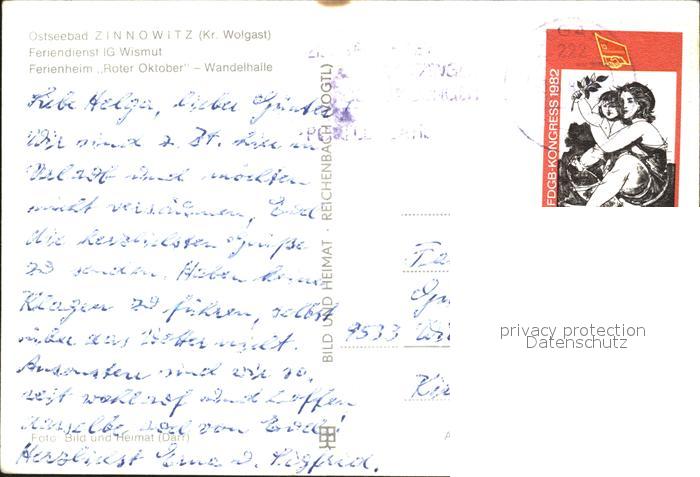 Ostseebad ZINNOWITZ (Kr. Wolgast)
Feriendienst IG Wismut
Ferienheim „Roter Oktober" – Wandelhalle
Liebe Helga, lieber Günter
Wir sind z. Zt. hier in
Urlaub und möchten
nicht versäumen, Euch
die herzlichsten Grüße
zu senden. Haben keine
Klagen zu führen, selbst
über das Wetter nicht.
Ansonsten sind wir so,
weit wohlauf und hoffen
dasselbe von Euch!
Foto: Bild und Heimat (Darr)
Herzlichst Erna u. Siegfried.
BILD UND HEIMAT · REICHENBACH (VOGTL)
222
FDGB-KONGRESS 1982
9533
privacy protection
Datenschutz